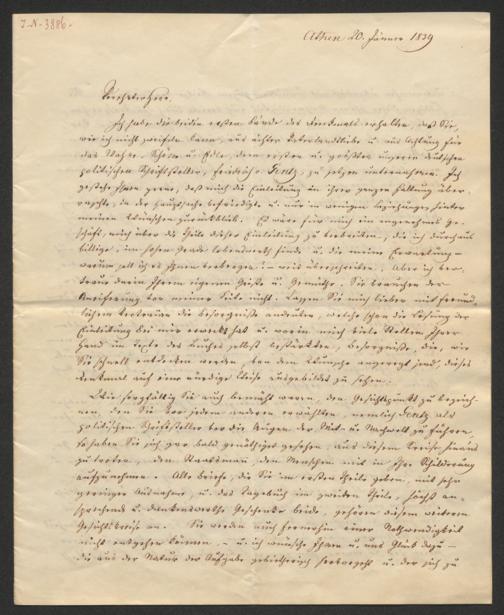 J.N. 3886.
Athen 20. Jänner 1839
Verehrter Herr.
Ich habe die beiden ersten Bände des Denkmals erhalten, daß Sie,
wie ich nicht zweifeln kann, aus ächter Vaterlandsliebe u. aus Achtung für
das Wahre, Schöne u. Edle, dem ersten u. größten unserer deutschen
politischen Schriftsteller, Friedrich v. Gentz, zu setzen unternahmen. Ich
gestehe Ihnen gerne, daß mich die Einleitung in ihrer ganzen Haltung über-
raschte, in der Hauptsache befriedigte u. nur in wenigen Beziehungen hinter
meinen Wünschen zurückblieb. Es wäre für mich ein angenehmes Ge-
schäft, mich über die Theile dieser Einleitung zu verbreiten, die ich durchaus
billige, im hohen Grade lobenswerth finde u. die meine Erwartung –
warum soll ich es Ihnen verbergen – weit überschreiten. Aber ich ver-
traue darin Ihrem eigenen Geiste u. Gemüthe. Sie brauchen der
Aneiferung von meiner Seite nicht. Lassen Sie mich lieber mit freund-
lichem Vertrauen die Besorgnisse andeuten, welche schon die Lesung der
Einleitung bei mir erweckt hat u. worin mich viele Stellen Ihrer
Hand im Texte des Buches selbst bestärkten, Besorgnisse, die, wie
Sie schnell entdecken werden, von dem Wunsche angeregt sind, dieses
Denkmal auf eine würdige Weise ausgebildet zu sehen.
Wie sorgfältig Sie auch bemüht waren, den Gesichtspunkt zu bezeich-
nen, den Sie vor jedem anderen erwählten, nemlich Gentz als
politischen Schriftsteller vor die Augen der Mit- u. Nachwelt zu führen,
so haben Sie sich gar bald genöthiget gesehen, aus diesem Kreise hinaus
zu treten, den Staatsmann, den Menschen mit in Ihre Schilderung
aufzunehmen. Alle Briefe, die Sie im ersten Theile geben, mit sehr
geringer Ausnahme, u. das Tagebuch im zweiten Theile, höchst an-
sprechende u. dankenswerthe Geschenke beide, gehören diesem weiteren
Gesichtskreise an. Sie werden auch fernerhin einer Nothwendigkeit
nicht entgehen können, – u. ich wünsche Ihnen u. uns Glück dazu –
die aus der Natur der Aufgabe gebieterisch hervorgeht u. der sich zu